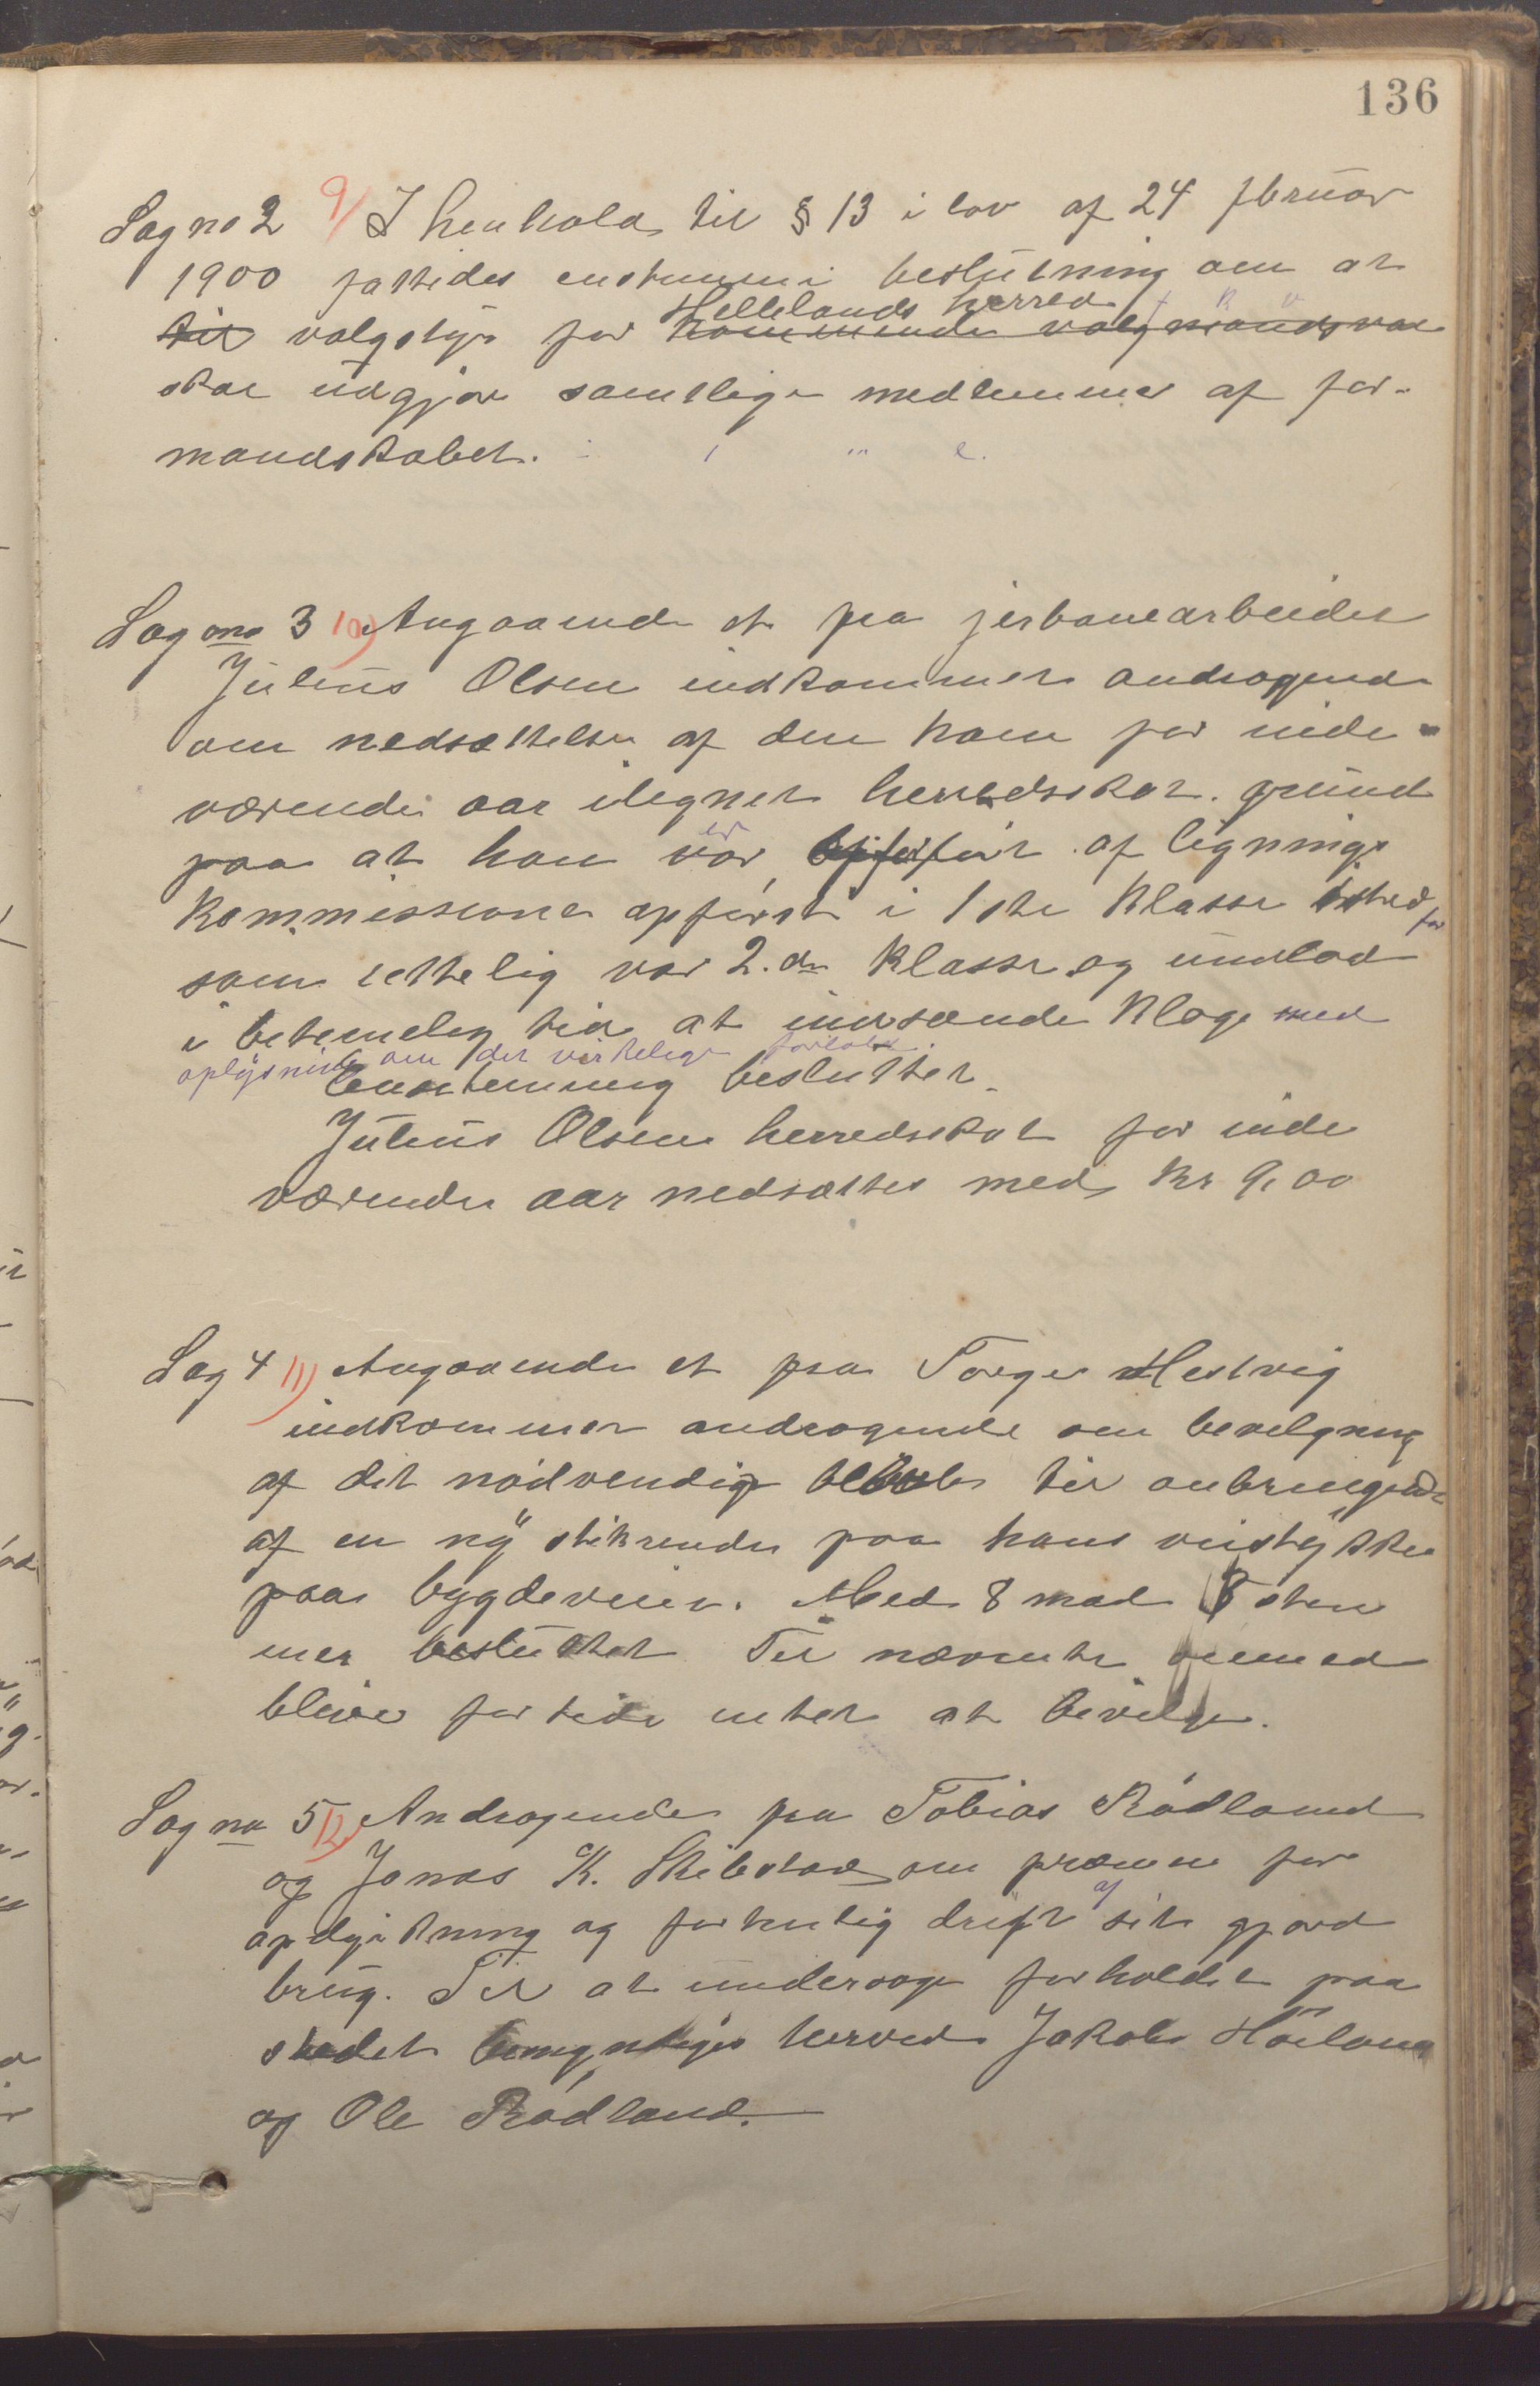 136
Sag no 2 9) I henhold til § 13 i lov af 24 februar
1900 fattedes enstemmi beslutning om at
til valgstyre for kommende valgmandsval
Hellelands herred
skal udgjøre samtlige medlemmer af for-
mandskabet.
Sag no 3 10) Angaaende et fra jerbanearbeider
Julius Olsen indkommet andragende
om nedsættelse af den ham for inde-
værende aar ilegnet herredsskat. grund
paa at han var af lignings
er
kommissionen opført i 1ste klasse isted
for
som rettelig var 2.den klasse og undlod
i betemeleg tid at indsænde klage med
oplysning om det virkelige forhold.
Enstemmig besluttet.
Julius Olsens herredsskat for inde
værende aar nedsættes med kr 9,00
Sag 4 11) Angaaende et fra Torger Hestvig
indkommet andragende om bevilgning
af det nødvendige beløb til anbringende
af en ny stikrende paa hans veistykke
paa bygdeveien. Med 8 mod 3 stem
mer besluttet Til nævnte øiemed
bliver for tiden intet at bevilge.
Sag no 5 12) Andragende fra Tobias Rødland
og Jonas K. Skibstad om præmie for
opdyrkning og forhulig drift af sit gjord
brug. Til at undersøge forholdet paa
stedet bemyndiges herved Jakob Høiland
og Ole Rødland.